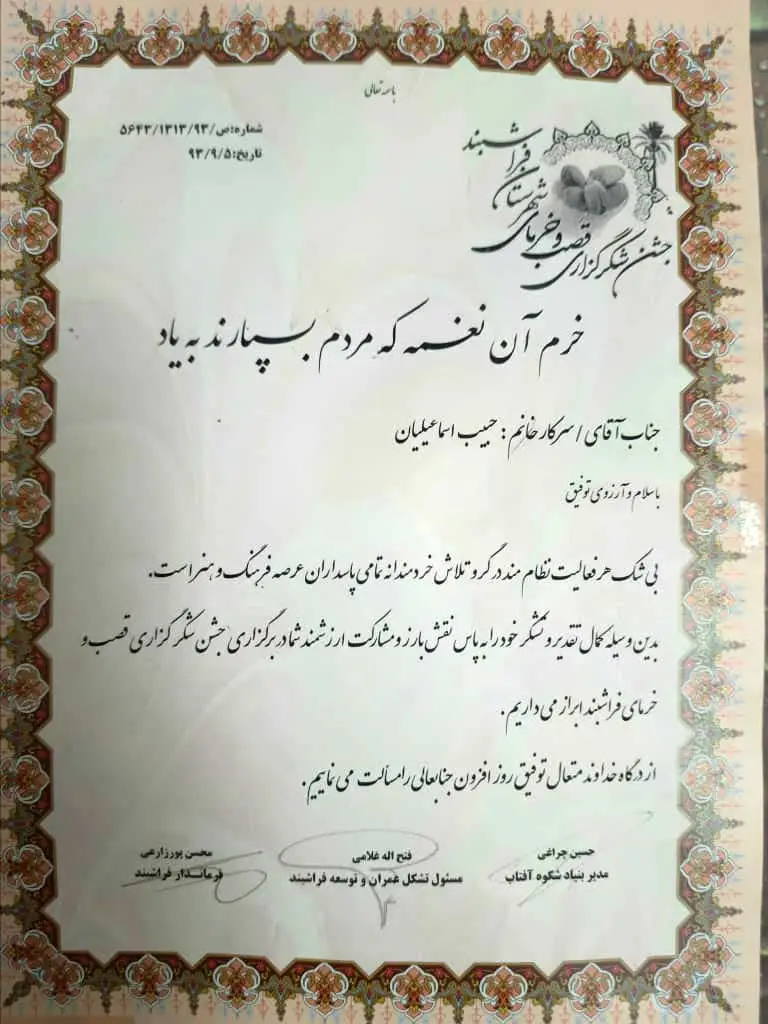 باسمه تعالی
شماره:ص/۵۶۴۳/۱۳۱۳/۹۳
تاریخ:۹۳/۹/۵
جشن شکرگزاری قصب و خرمای شهرستان فراشبند
خرم آن نغمه که مردم بسپارند به یاد
جناب آقای / سرکار خانم : حبیب اسماعیلیان
باسلام و آرزوی توفیق
بی شک هر فعالیت نظام مند در گرو تلاش خردمندانه تمامی پاسداران عرصه فرهنگ و هنر است.
بدین وسیله کمال تقدیر و تشکر خود را به پاس نقش بارز و مشارکت ارزشمند شما در برگزاری جشن شکر گزاری قصب و
خرمای فراشبند ابراز می داریم .
از درگاه خداوند متعال توفیق روز افزون جنابعالی را مسألت می نماییم .
حسین چراغی
مدیر بنیاد شکوه آفتاب
فتح اله غلامی
مسئول تشکل عمران و توسعه فراشبند
محسن پورزارعی
فرماندار فراشبند